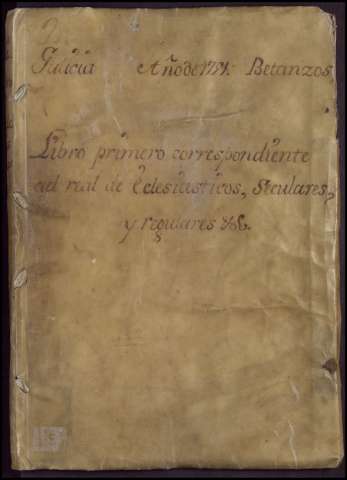 Galicia Año de 1751. Betanzos
Libro primero correspondiente
al real de Eclesiasticos, Seculares,
y regulares &c.